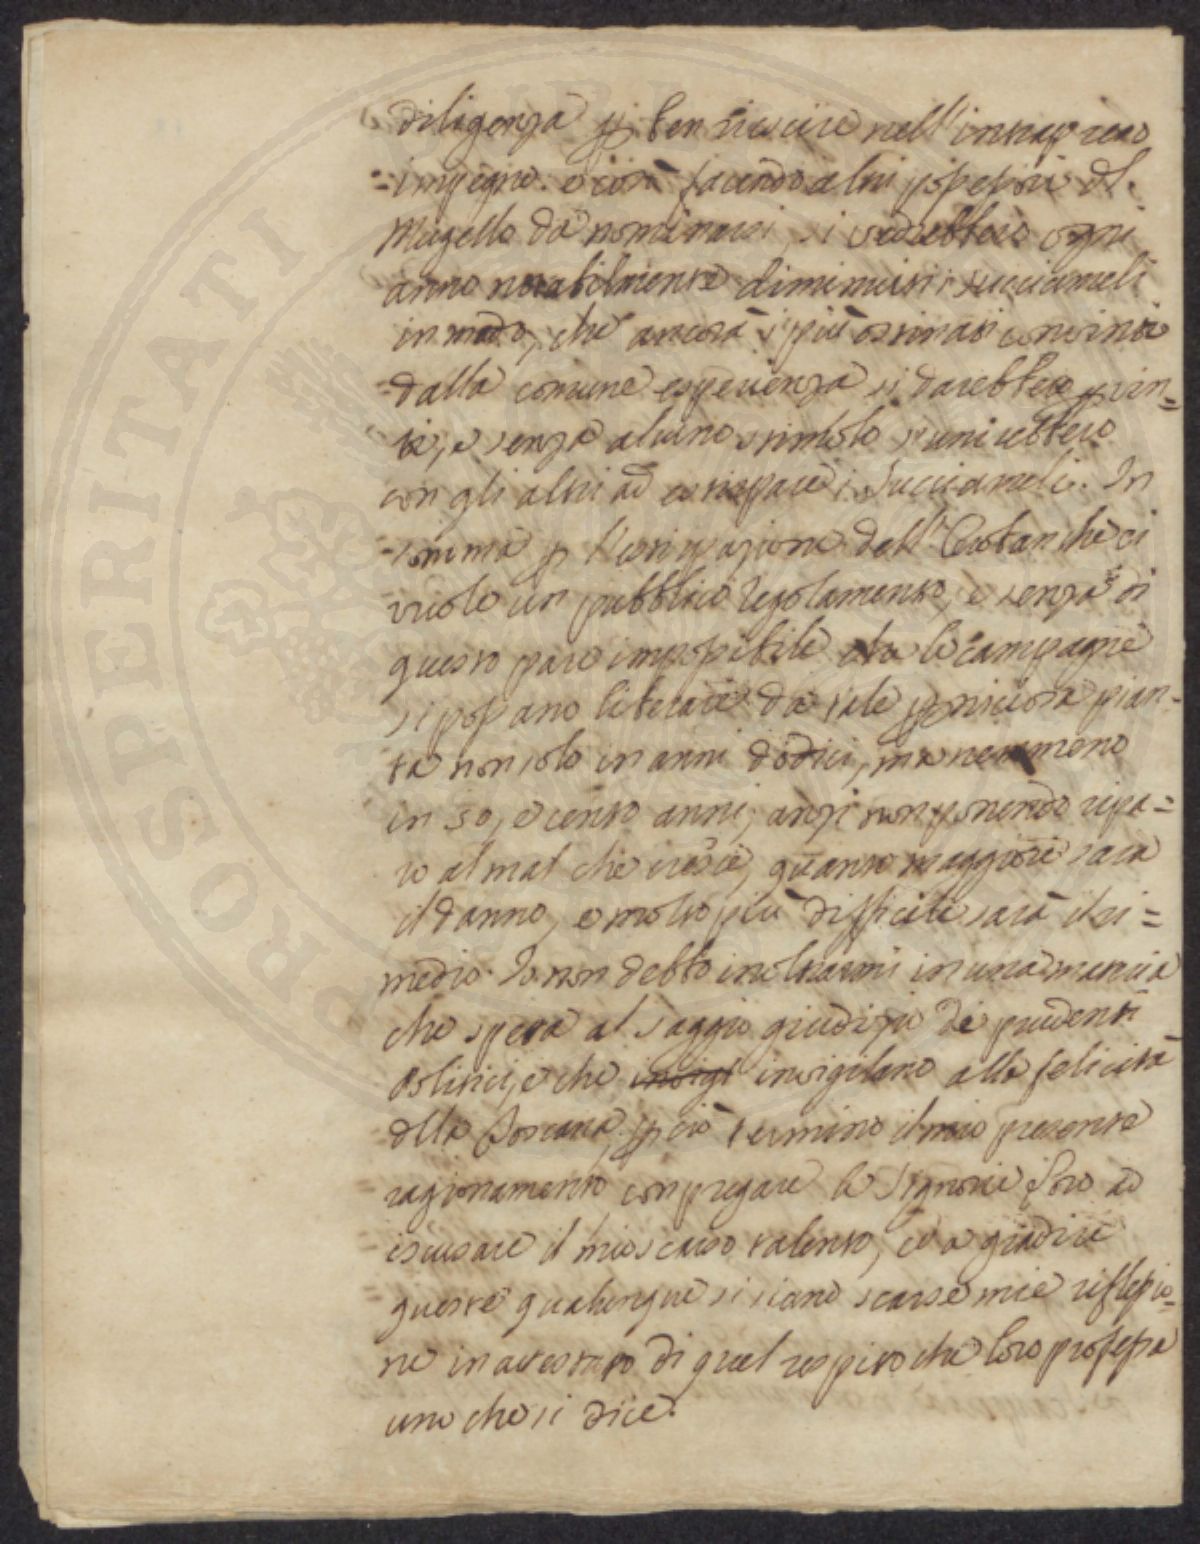 diligenza p ben riescire nell'intrapreso
impegno. e così facendo altri possessori del
Mugello da nominarsi, si vedrebbero ogni
anno notabilmente diminuiti i succiameli
in modo, che ancora i più ostinati convinti
dalla comune esperienza si darebbero p vin=
ti, e senza alcuno stimolo si unirebbero
con gli altri ad estirpare i Succiameli. In
somma p l'estirpazione dell'Orobanche ci
vuole un pubblico regolamento, e senza di
questo pare impossibile che le campagne
si possano liberare da tale perniciosa pian-
ta non solo in anni dodici, ma nemmeno
in 50, o cento anni, anzi non ponendo ripa=
ro al mal che cresce, quanto maggiore sarà
il danno, e molto più difficile sarà il ri=
medio. Io non debbo inoltrarmi in una materia
che spetta al saggio giudizio de prudenti
Politici, e che invigilano alla felicità
della Toscana, p ciò termino il mio presente
ragionamento con pregare le Signorie Loro ad
iscusare il mio scarso talento, ed a gradire
queste qualunque si siano scarse mie riflessio=
ne in attestato di quel rispetto che loro professa
uno che si dice.
PROSPERITATI